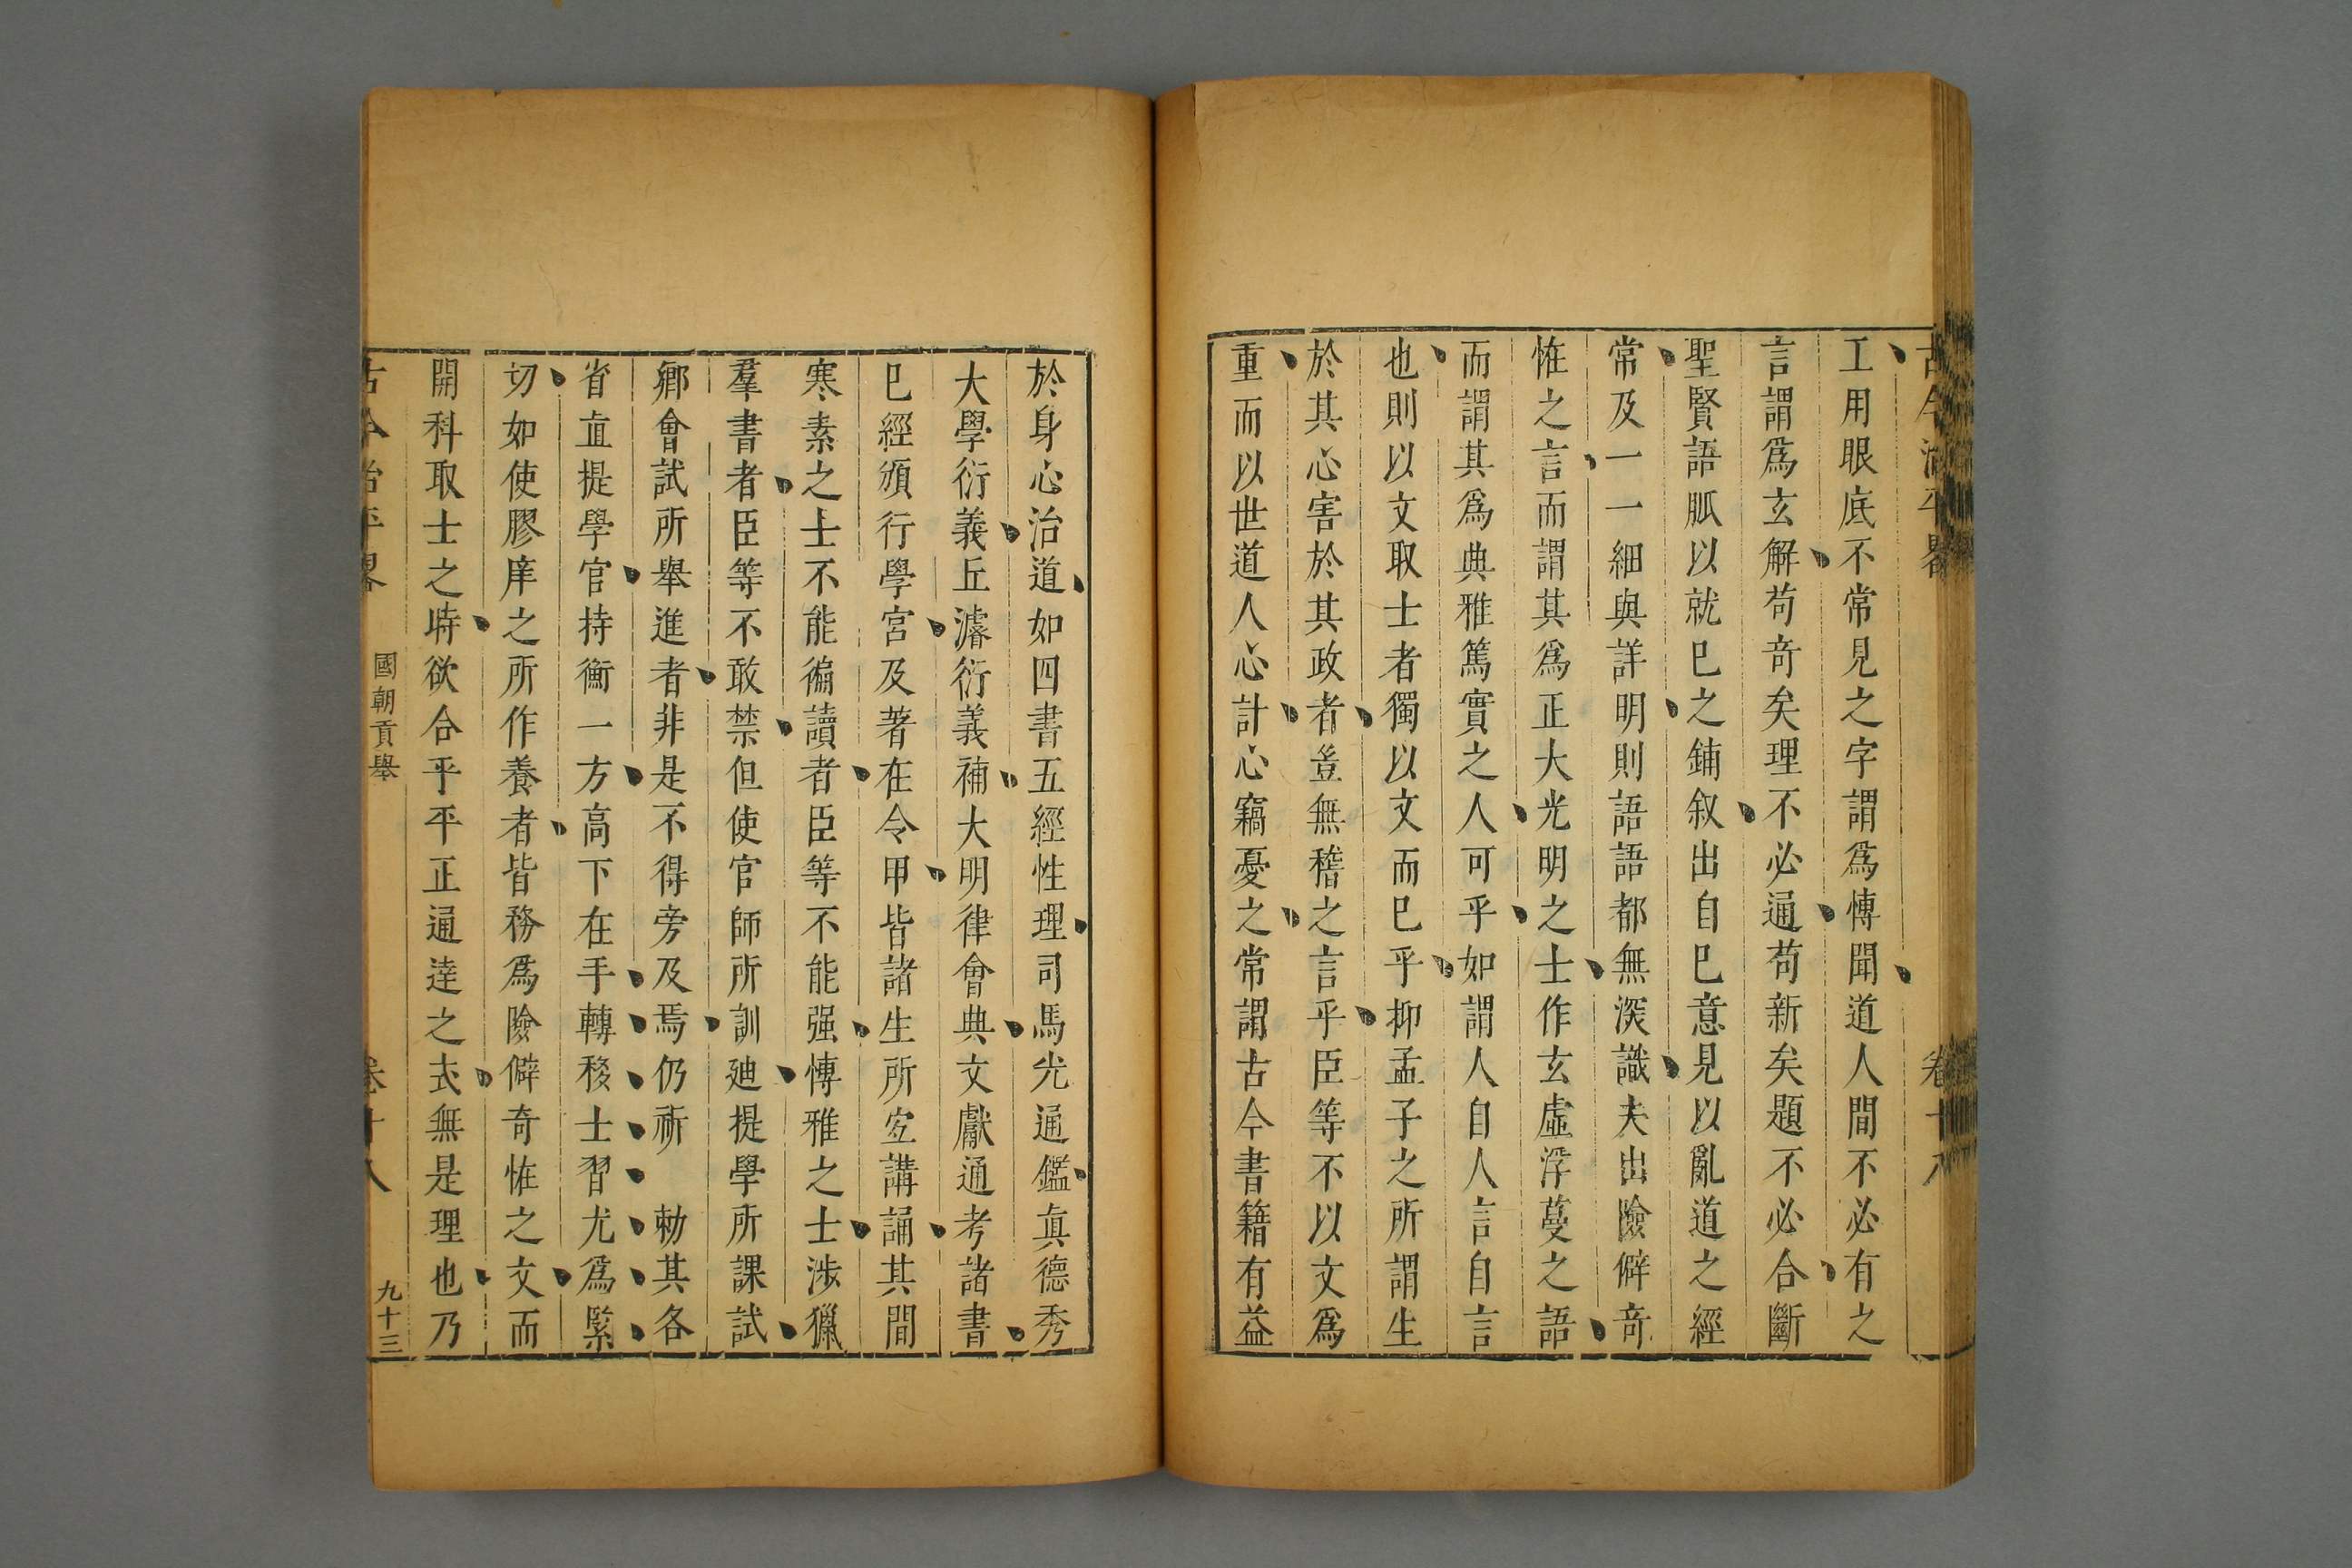 古今治平畧 卷十八
工用眼底不常見之字謂爲愽聞道人間不必有之
言謂爲玄解苟奇矣理不必通苟新矣題不必合斷
聖賢語脈以就巳之鋪叙出自巳意見以亂道之經
常及一一細與詳明則語語都無深識夫出險僻奇
恠之言而謂其爲正大光明之士作玄虛浮蔓之語
而謂其爲典雅篤實之人可乎如謂人自人言自言
也則以文取士者獨以文而巳乎抑孟子之所謂生
於其心害於其政者豈無稽之言乎臣等不以文爲
重而以世道人心計心竊憂之常謂古今書籍有益
於身心治道如四書五經性理司馬光通鑑眞德秀
大學衍義丘濬衍義補大明律會典文獻通考諸書
巳經頒行學宮及著在令甲皆諸生所宜講誦其間
寒素之士不能徧讀者臣等不能强愽雅之士涉獵
羣書者臣等不敢禁但使官師所訓廸提學所課試
鄉會試所舉進者非是不得旁及焉仍祈 勑其各
省直提學官持衡一方高下在手轉移士習尤爲緊
切如使膠庠之所作養者皆務爲險僻奇恠之文而
開科取士之時欲合乎平正通達之式無是理也乃
古今治平畧 國朝貢舉 卷十八 九十三